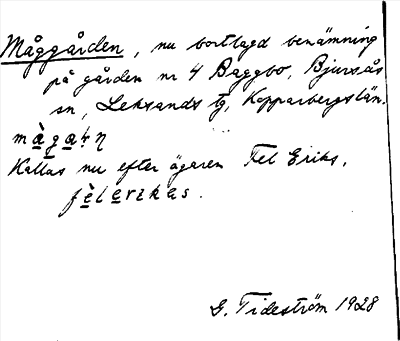 Måggården, nu bortlagd benämning
på gården nr 4 Baggbo, Bjursås
sn, Leksands tg, Kopparbergs län.
Kallas nu efter ägaren Fel Eriks,
G. Tideström 1928